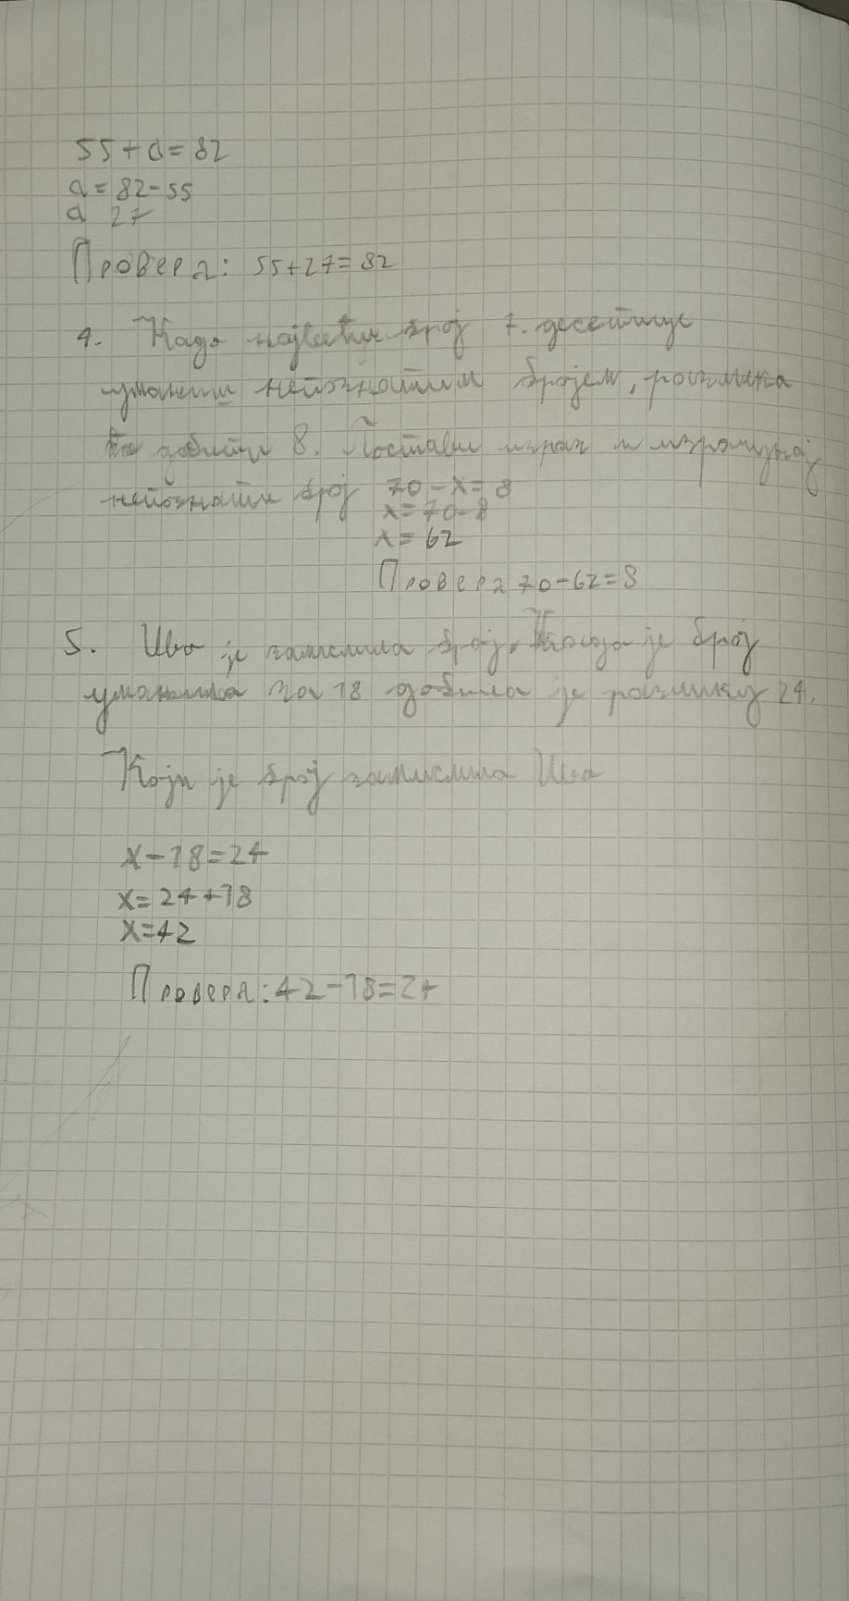 55+a=82
a=82-55
a 27
Провера: 55+27=82
4. Када највећи број 7. десетице
умањиш непознатим бројем, разлика
ће бити 8. Постави израз и израчунај
непознати број 70-x=8
x=70-8
x=62
Провера 70-62=8
5. Ива је замислила број. Када је број
умањила за 18 добила је разлику 24.
Који је број замислила Ива
x-18=24
x=24+18
x=42
Провера: 42-18=24